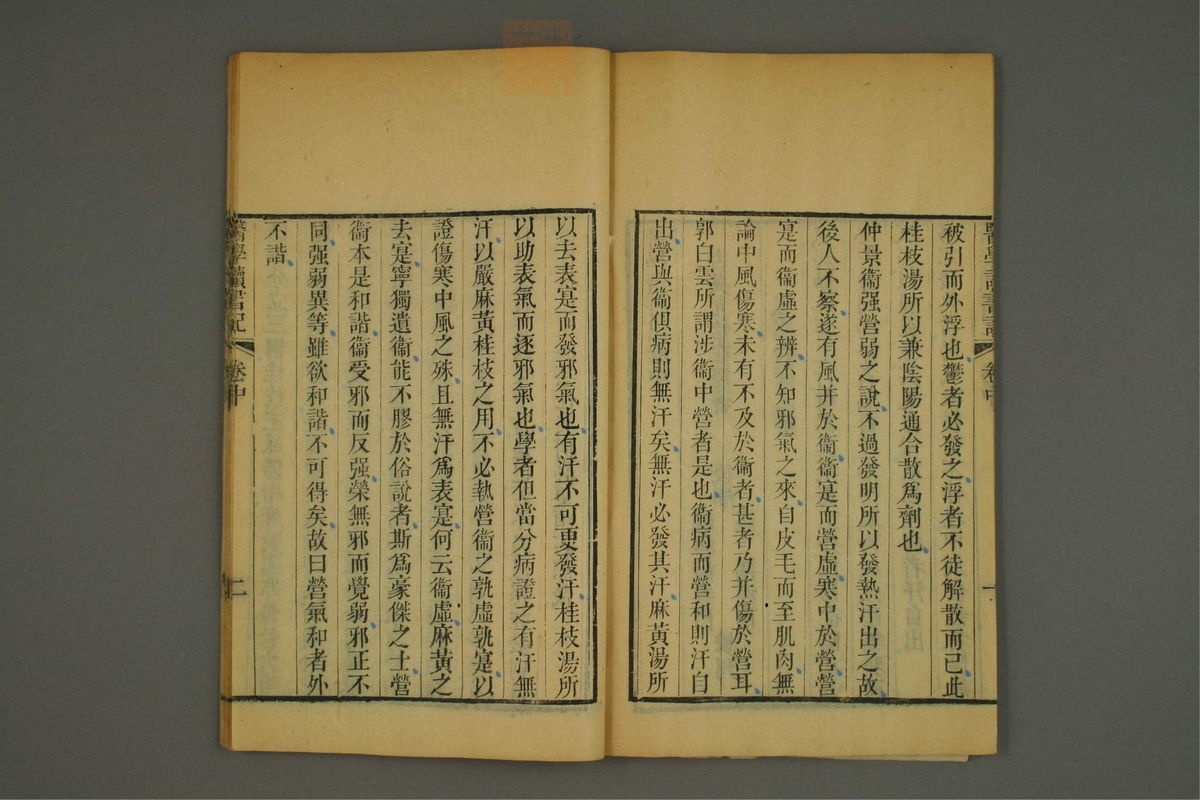 被引而外浮也鬱者必發之浮者不徒解散而已此
桂枝湯所以兼陰陽通合散爲劑也
仲景衞强營弱之說不過發明所以發熱汗出之故
後人不察遂有風并於衞衞寔而營虛寒中於營營
寔而衞虛之辨不知邪氣之來自皮毛而至肌肉無
論中風傷寒未有不及於衞者甚者乃并傷於營耳
郭白雲所謂涉衞中營者是也衞病而營和則汗自
出營與衞俱病則無汗矣無汗必發其汗麻黃湯所
以去表寔而發邪氣也有汗不可更發汗桂枝湯所
以助表氣而逐邪氣也學者但當分病證之有汗無
汗以嚴麻黃桂枝之用不必執營衞之孰虛孰寔以
證傷寒中風之殊且無汗爲表寔何云衞虛麻黃之
去寔寧獨遺衞能不膠於俗說者斯爲豪傑之士營
衞本是和諧衞受邪而反强榮無邪而覺弱邪正不
同强弱異等雖欲和諧不可得矣故曰營氣和者外
不諧
醫學讀書記 卷中 二